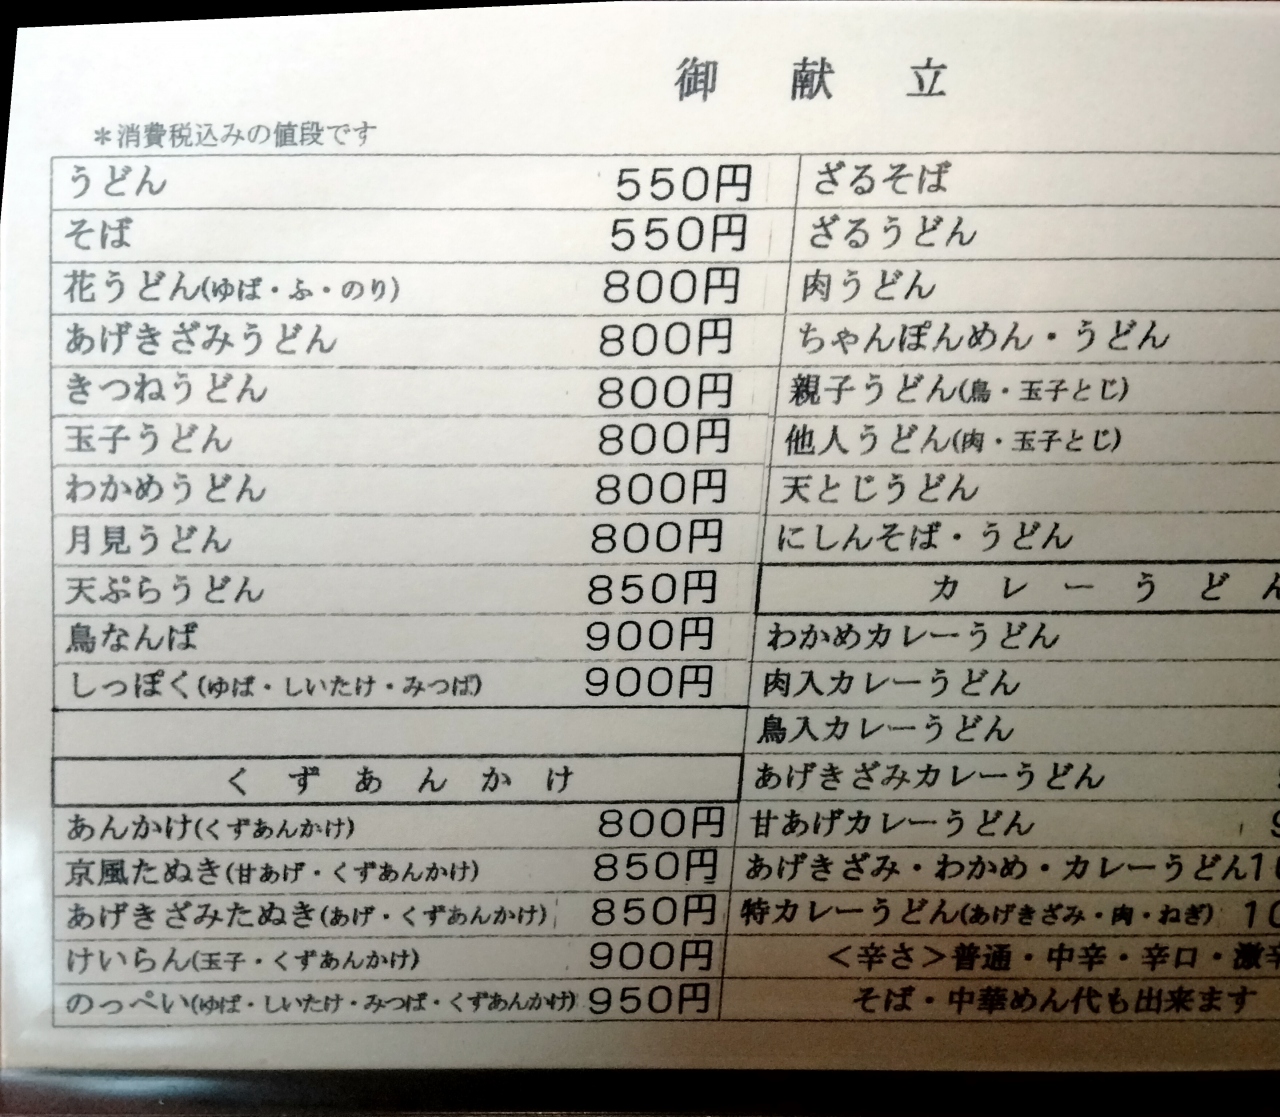 御献立
＊消費税込みの値段です
うどん 550円
そば 550円
花うどん(ゆば・ふ・のり) 800円
あげきざみうどん 800円
きつねうどん 800円
玉子うどん 800円
わかめうどん 800円
月見うどん 800円
天ぷらうどん 850円
鳥なんば 900円
しっぽく(ゆば・しいたけ・みつば) 900円
くずあんかけ
あんかけ(くずあんかけ) 800円
京風たぬき(甘あげ・くずあんかけ) 850円
あげきざみたぬき(あげ・くずあんかけ) 850円
けいらん(玉子・くずあんかけ) 900円
のっぺい(ゆば・しいたけ・みつば・くずあんかけ) 950円
ざるそば
ざるうどん
肉うどん
ちゃんぽんめん・うどん
親子うどん(鳥・玉子とじ)
他人うどん(肉・玉子とじ)
天とじうどん
にしんそば・うどん
カレーうどん
わかめカレーうどん
肉入カレーうどん
鳥入カレーうどん
あげきざみカレーうどん
甘あげカレーうどん
あげきざみ・わかめ・カレーうどん
特カレーうどん(あげきざみ・肉・ねぎ)
＜辛さ＞普通・中辛・辛口・激辛
そば・中華めん代も出来ます